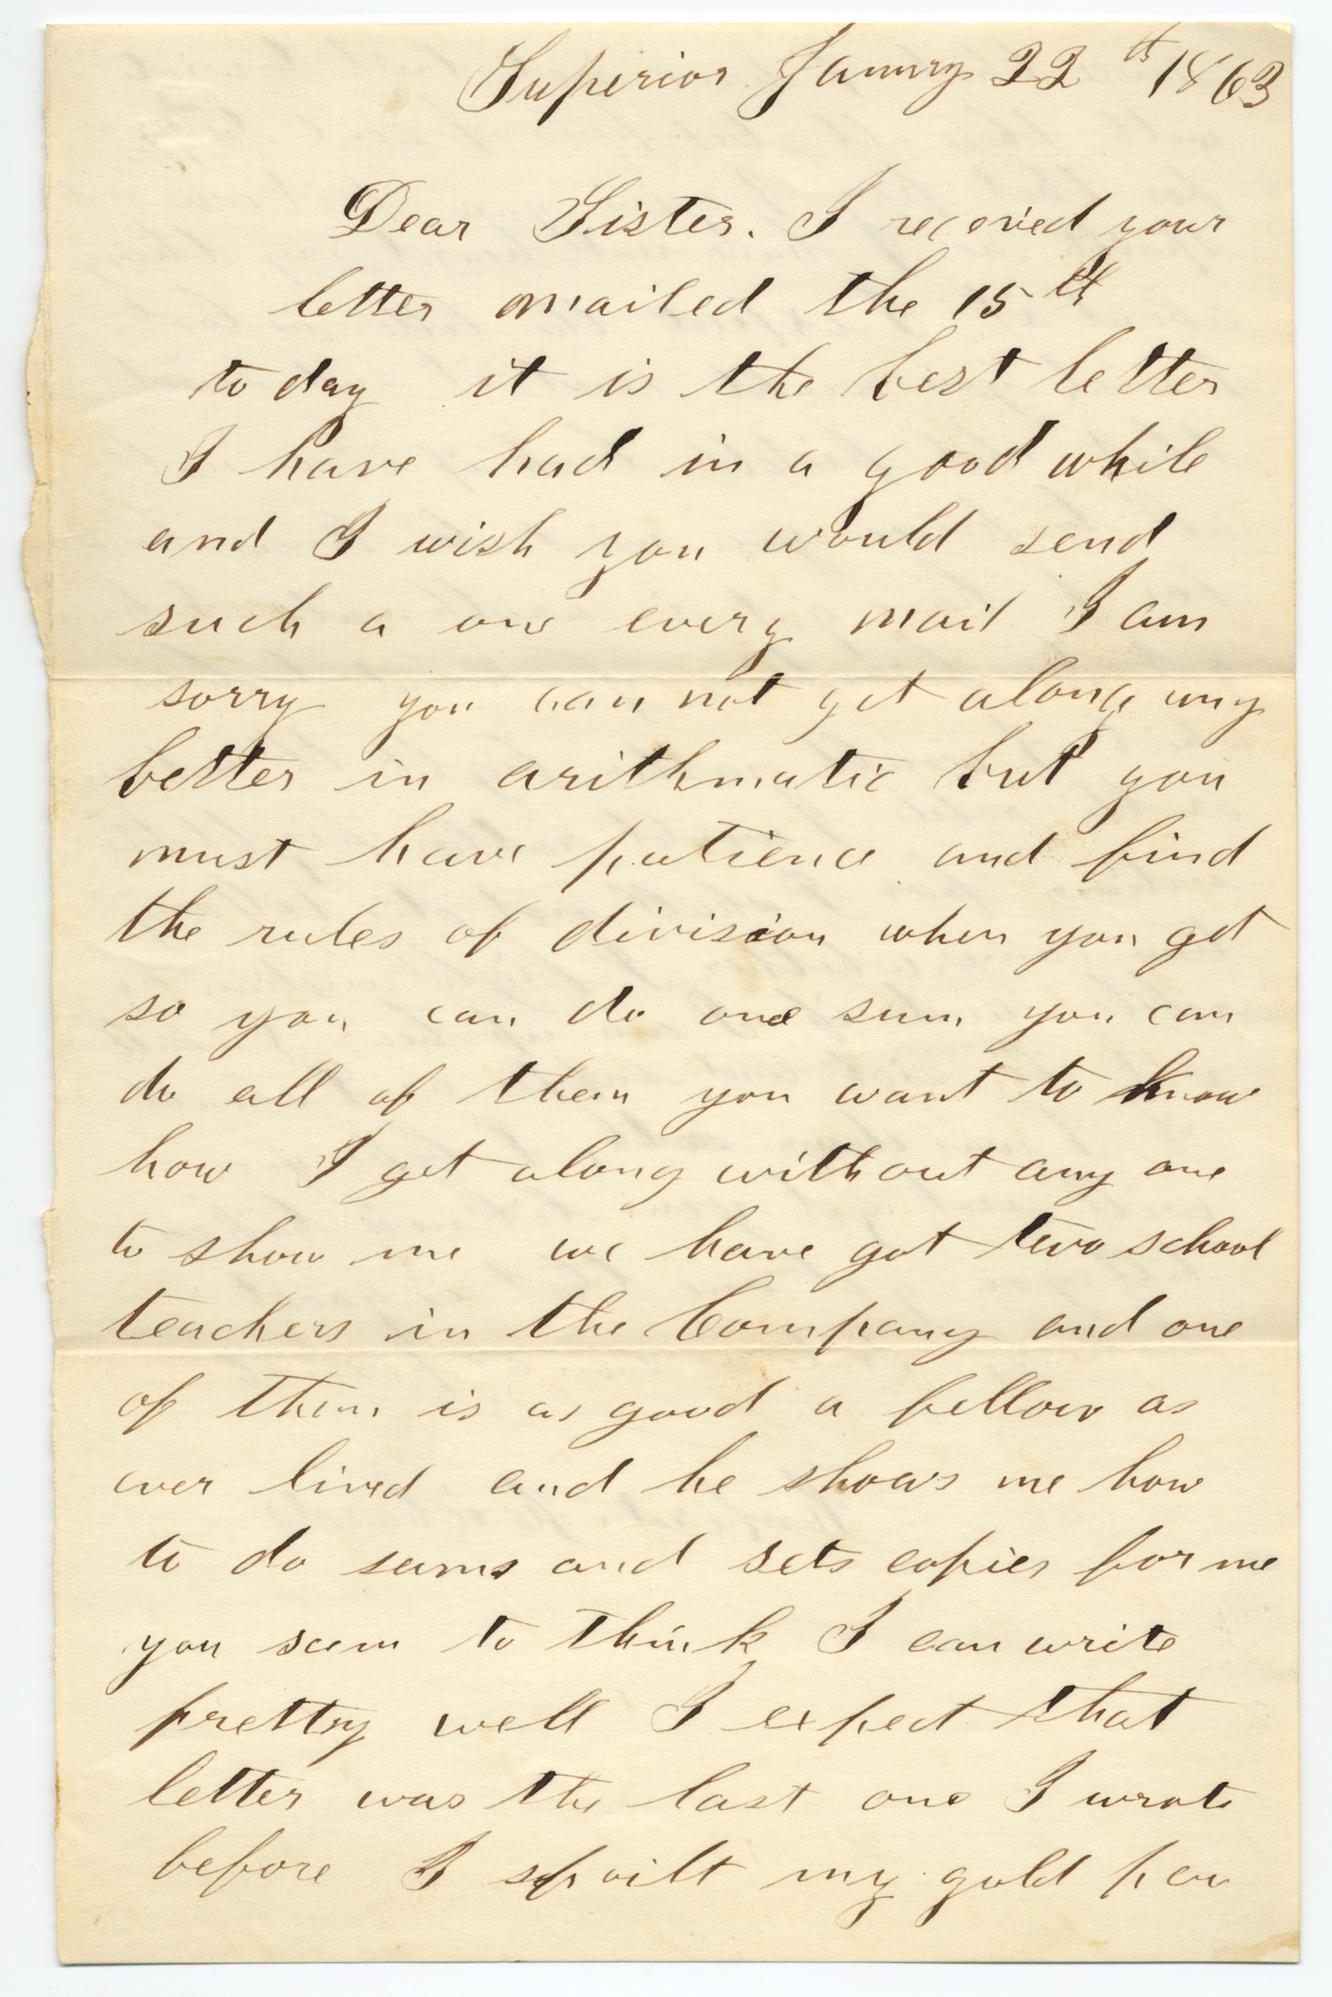 Superior Janury 22th 1863
Dear Sister. I received your
letter mailed the 15th
to day it is the best letter
I have had in a good while
and I wish you would send
such a one every mail I am
sorry you can not get along any
better in arithmatic but you
must have patience and find
the rules of division when you get
so you can do one sum you can
do all of them you want to know
how I get along without any one
to show me we have got two school
teachers in the Company and one
of them is as good a fellow as
ever lived and he shows me how
to do sums and sets copies for me
you seem to think I can write
pretty well I expect that
letter was the last one I wrote
before I spoilt my gold pen